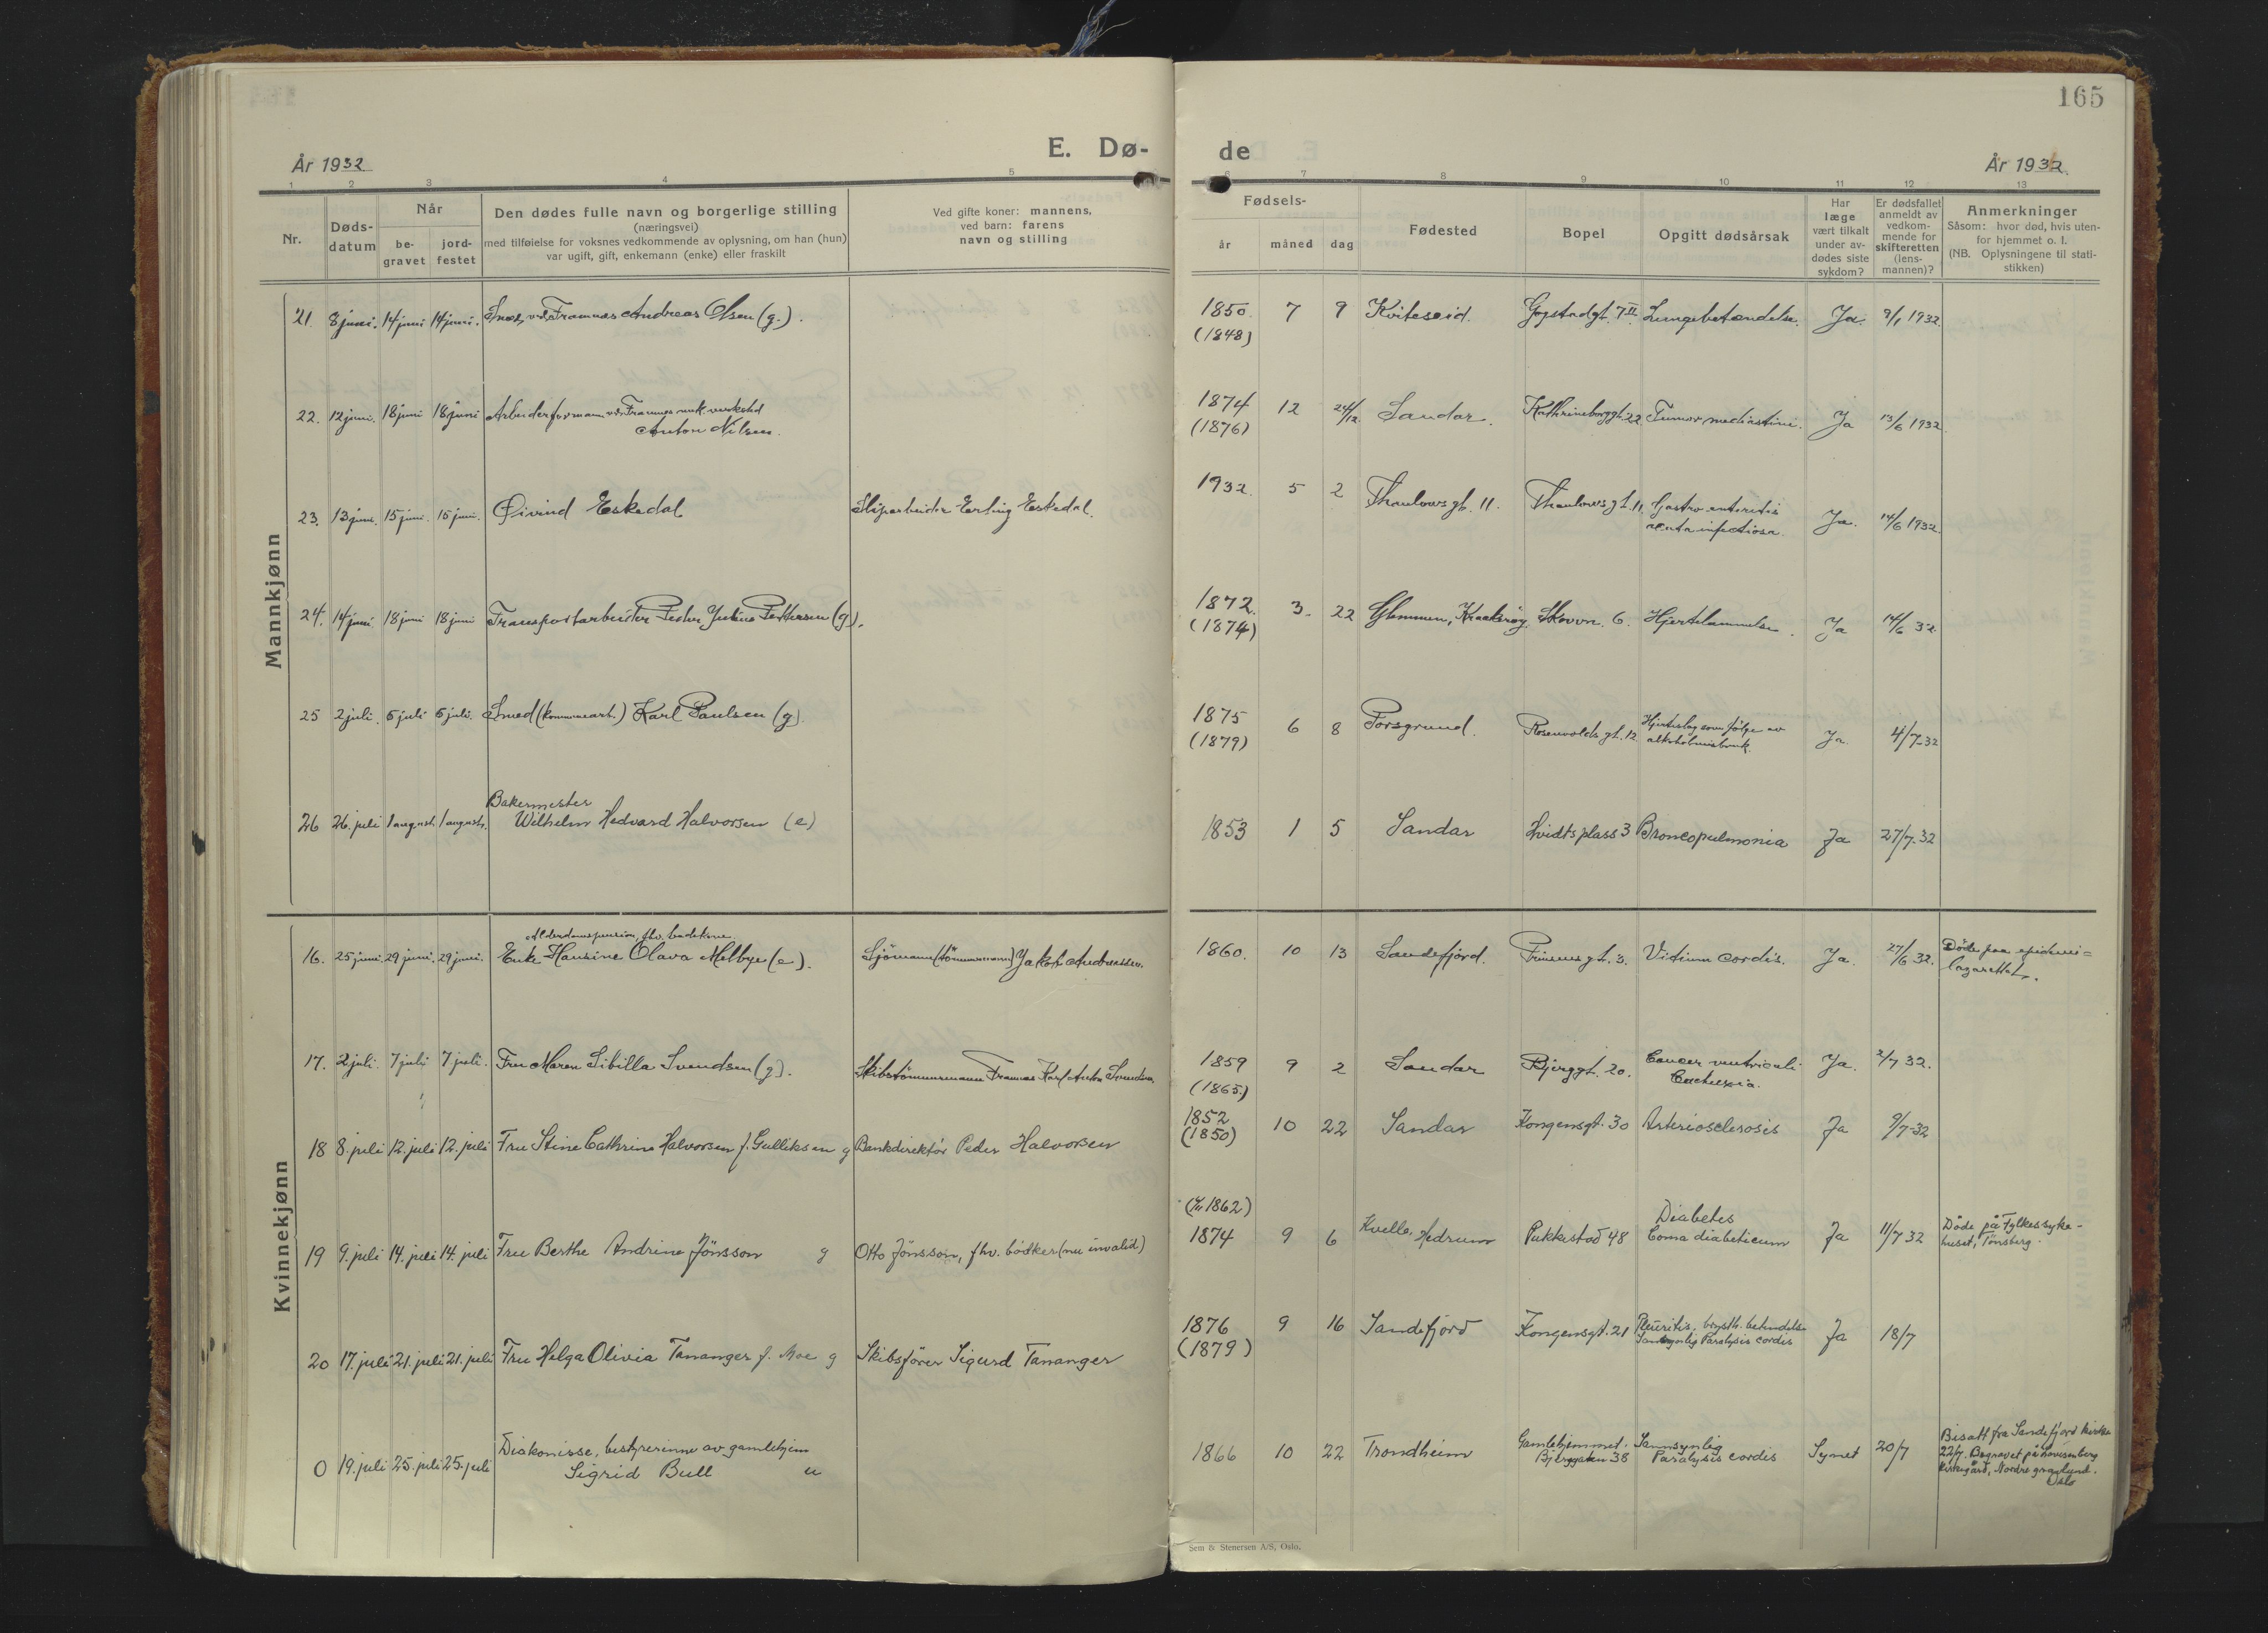 165
År 1932
E. Dø-
de
År 1932.
1 2 3 4 5
6 7 8 9 10 11 12 13
Nr.
Døds-
datum
Når
be-
gravet
jord-
festet
Den dødes fulle navn og borgerlige stilling
(næringsvei)
med tilføielse for voksnes vedkommende av oplysning, om han (hun)
var ugift, gift, enkemann (enke) eller fraskilt
Ved gifte koner: mannens,
ved barn: farens
navn og stilling
Fødsels-
år måned dag
Fødested
Bopel
Opgitt dødsårsak
Har
læge
vært tilkalt
under av-
dødes siste
sykdom?
Er dødsfallet
anmeldt av
vedkom-
mende for
skifteretten
(lens-
mannen)?
Anmerkninger
Såsom: hvor død, hvis uten-
for hjemmet o. l.
(NB. Oplysningene til stati-
stikken)
Mannkjønn
21. 8 juni. 14 juni 14 juni. Framnæs Andreas Olsen (g.).
1850. 7 9 Kviteseid. Gogstadgt. 7 II. Lungebetændelse. Ja. 9/1 1932.
(1848)
22. 12 juni. 18 juni 18 juni Arbeiderformann ved Framnæs mek. verksted
Anton Nilsen.
1874 12 24/12. Sandar. Kathrineborggt. 22 Tumor mediastini. Ja 13/6 1932
(1876)
23. 13 juni. 15 juni. 15 juni. Øivind Eskedal Sliparbeider Erling Eskedal.
1932. 5 2 Thaulowsgt. 11. Thaulowsgt. 11. Gastro enteritis
acuta infectiosa. Ja. 14/6 1932.
24. 14 juni. 18 juni 18 juni Transportarbeider Peder Julius Pettersen (g).
1872. 3. 22 Glemmen, Kraakerøy. Skovvn. 6. Hjertelammelse. Ja 14/6 32.
(1874)
25 2 juli. 6 juli 6 juli. Smed (kommunearb.) Karl Paulsen (g)
1875 6 8 Porsgrund. Rosenvoldsgt. 12 Hjerteslag som følge av
alkoholmisbruk. Ja. 4/7-32
(1879)
26 26. juli 1 august. 1 august. Bakermester
Wilhelm Hedvard Halvorsen (e)
1853 1 5 Sandar Hvidtsplass 3 Broncopulmonia Ja 27/7-32
Kvinnekjønn
Alderdomspension, fhv. badekone
16. 25 juni. 29 juni. 29 juni. Enke Hansine Olava Melbye (e). Sjømann (tømmermann) Jakob Andreassen.
1860. 10 13 Sandefjord. Prinsensgt. 3. Vitium cordis. Ja. 27/6 32. Døde paa epidemi=
lazarettet.
17. 2 juli. 7 juli 7 juli. Fru Maren Sibilla Svendsen (g). Skibstømmermann Framnæs Karl Anton Svendsen.
1859 9 2 Sandar Bjerggt. 20. Cancer ventriculi
Cachexia. Ja. 2/7 32.
(1865.)
18 8. juli 12. juli 12. juli Fru Stine Cathrine Halvorsen f. Gulliksen g Bankdirektør Peder Halvorsen
1852 10 22 Sandar Kongensgt. 30 Arteriosclerosis Ja 9/7-32
(1850)
19 9. juli 14. juli 14. juli Fru Berthe Andrine Jönsson g Otto Jönsson, fhv. bödker (nu invalid)
(1862)
1874 9 6 Kvelle, Hedrum Pukkestad 48 Diabetes
Coma diabeticum Ja 11/7 32 Døde på Fylkessyke-
huset, Tønsberg.
20 17. juli 21. juli 21. juli Fru Helga Olivia Tananger f. Moe g Skibsfører Sigurd Tananger
1876 9 16 Sandefjord Kongensgt. 21 Pleuritis, brysth. betendelse
Sannsynlig Paralysis cordis Ja 18/7
(1879)
0 19. juli 25. juli 25. juli Diakonisse, bestyrerinne av gamlehjem
Sigrid Bull u
1866 10 22 Trondheim Gamlehjemmet.
Bjerggaten 38 Sannsynlig
Paralysis cordis Synet 20/7 Bisatt fra Sandefjord kirke
22/7. Begravet på Lovisenberg
kirkegård, Nordre gravlund.
Oslo
Sem & Stenersen A/S, Oslo.